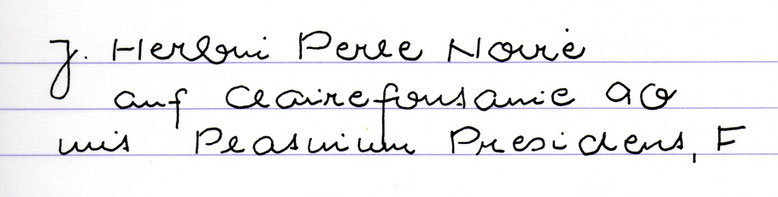 J. Herbin Perle Noire
auf Clairefontaine 90
mit Platinum President, F